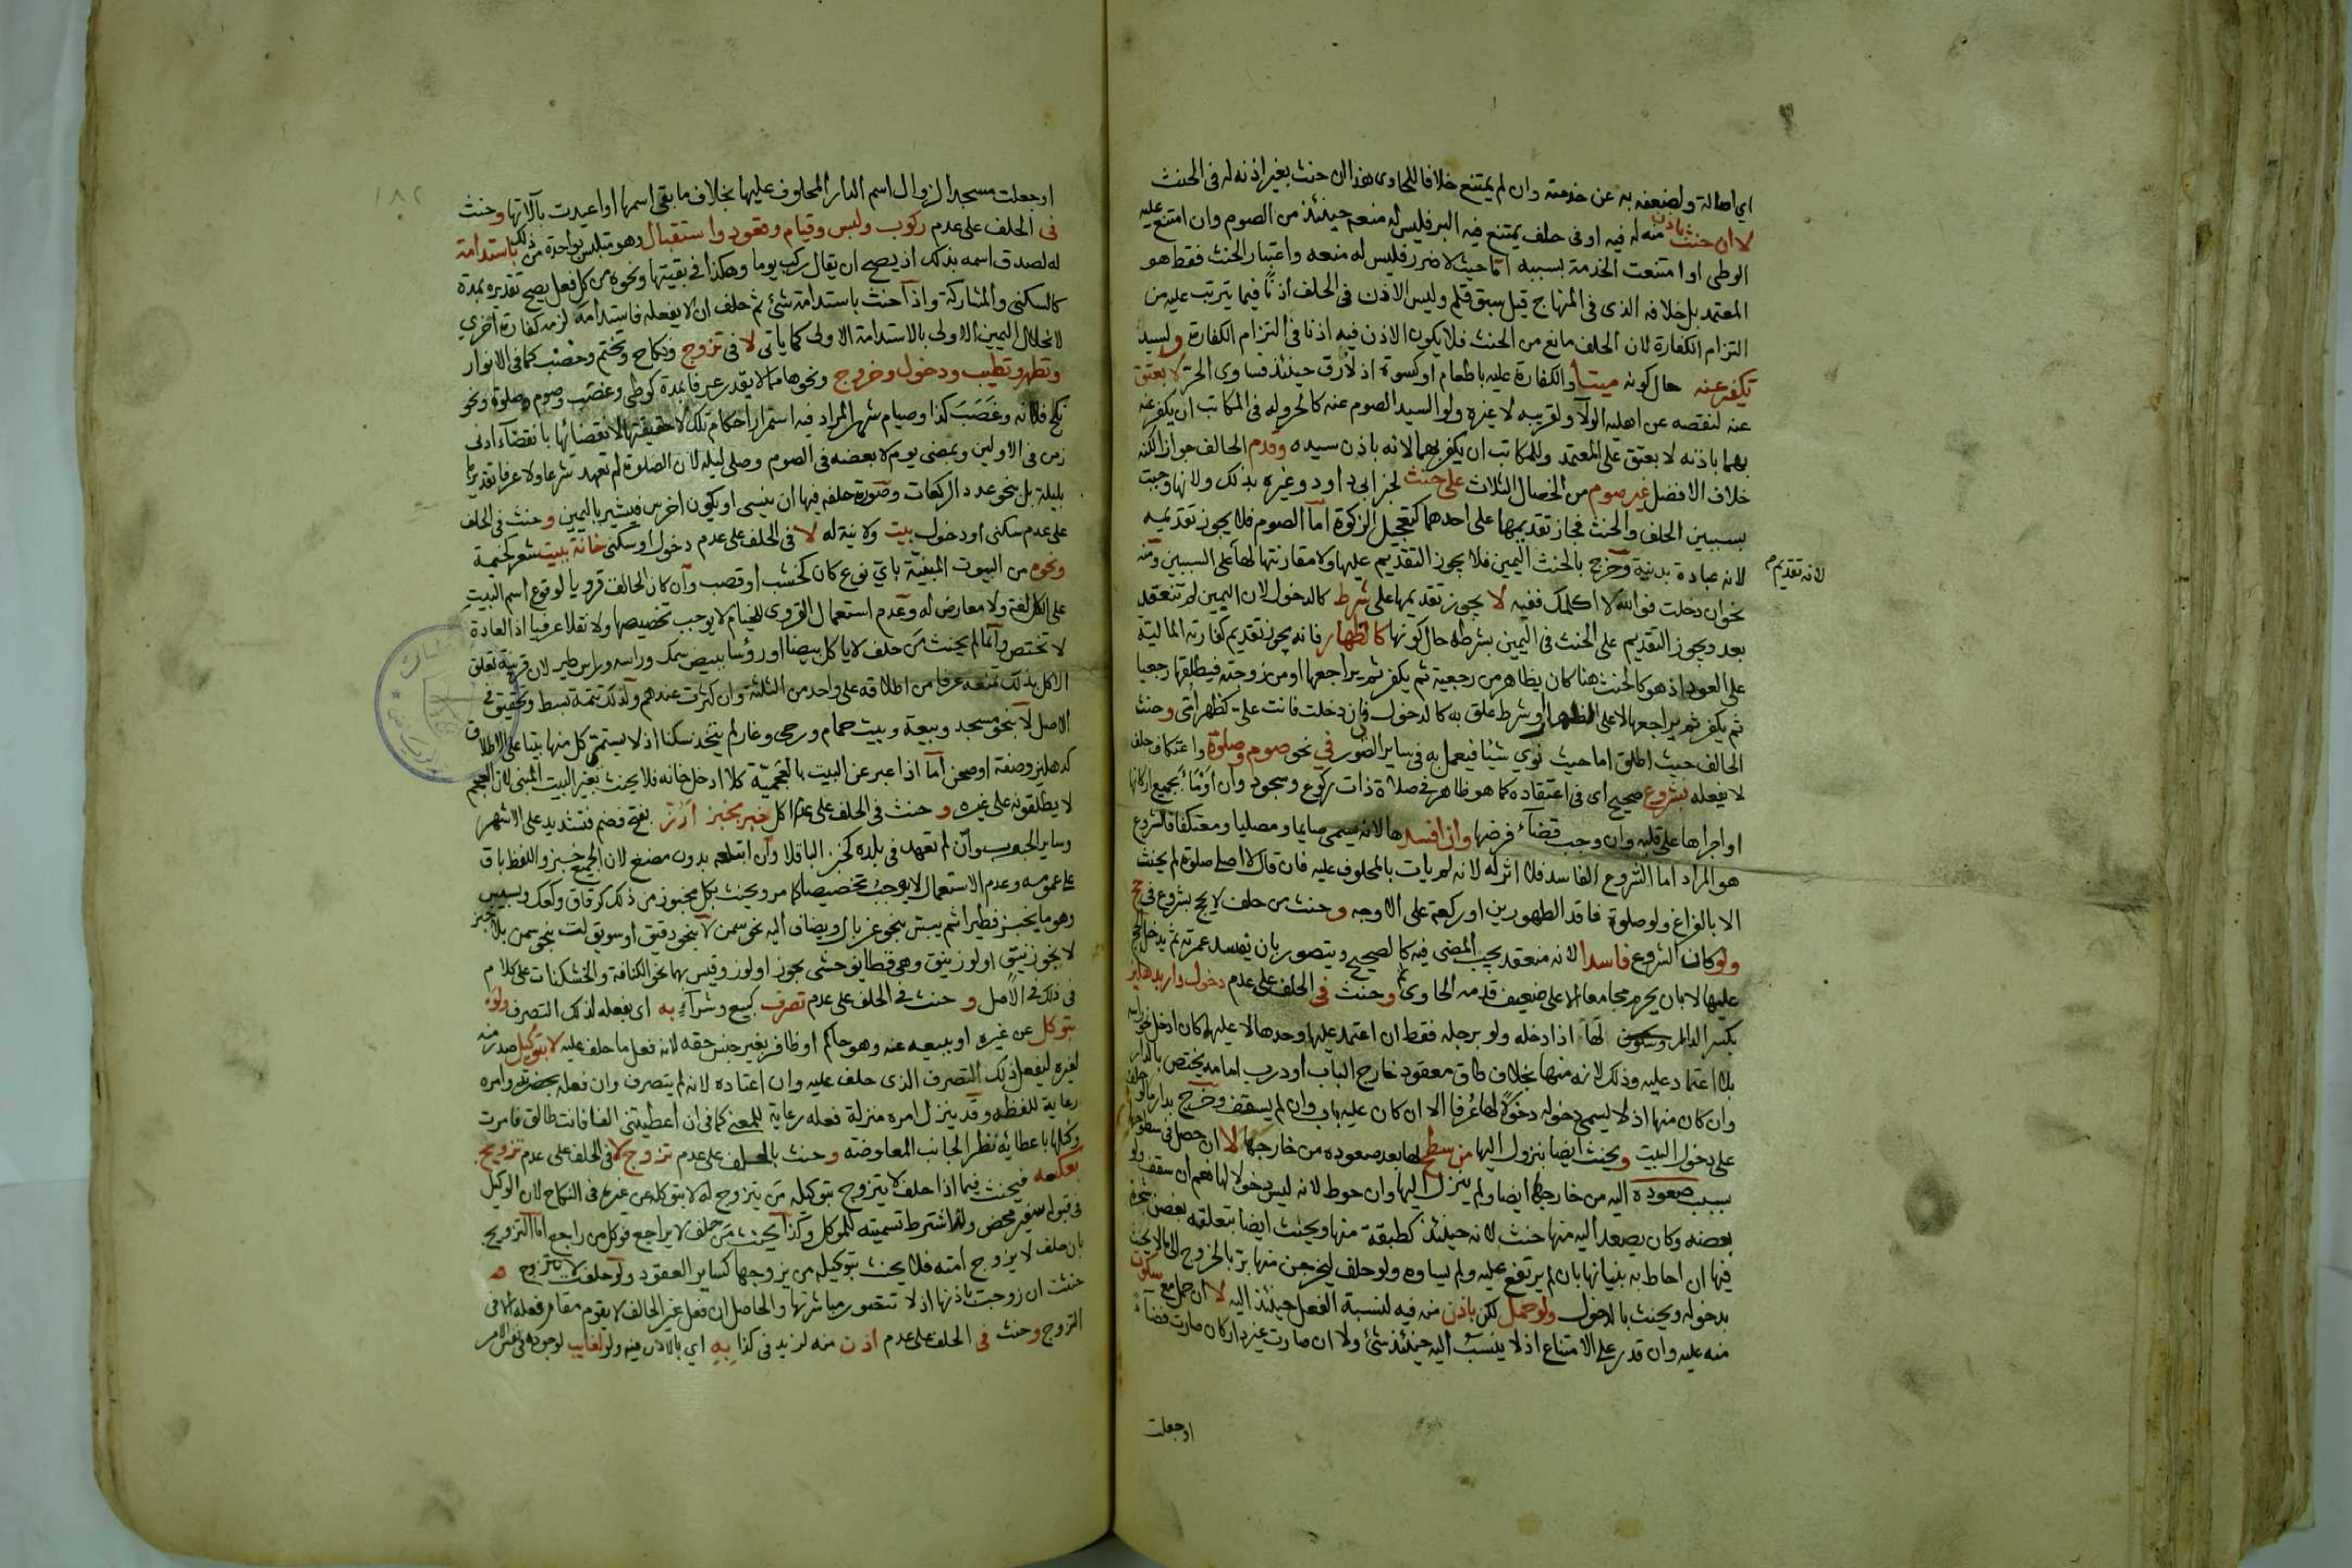 اي اصالة ولضعفه به عن خدمته وان لم يمتنع خلافا للحاوى هذا ان حنث بغير اذنه له فى الحنث
لا ان حنث باذن منه له فيه او فى حلف يمتنع فيه البر فليس له منعه حينئذ من الصوم وان امتنع عليه
الوطى او امتنعت الخدمة بسببه اما حيث لا ضرر فليس له منعه واعتبار الحنث فقط هو
المعتمد بل خلافه الذى فى المنهاج قيل سبق قلم وليس الاذن فى الحلف اذنا فيما يترتب عليه من
التزام الكفارة لان الحلف مانع من الحنث فلا يكون الاذن فيه اذنا فى التزام الكفارة ولسيد
تكفير عنه حال كونه ميتا والكفارة عليه باطعام او كسوة اذ لا رق حينئذ فساوى الحر لا بعتق
عنه لنقصه عن اهلية الولآ ولقريبه لا غيره ولو السيد الصوم عنه كالحر وله فى المكاتب ان يكفر عنه
بهما باذنه لا بعتق على المعتمد وللمكاتب ان يكفر بهما لانه باذن سيده وقدم الحالف جوازا لكنه
خلاف الافضل غير صوم من الخصال الثلاث على حنث لخبر ابى داود وغيره بذلك ولانها وجبت
بسببين الحلف والحنث فجاز تقديمها على احدهما كتعجيل الزكوة اما الصوم فلا يجوز تقديمه
لانه عبادة بدنية وخرج بالحنث اليمين فلا يجوز التقديم عليها ولا مقارنتها لها على السببين ومنه
لانه تقديم م
نحو ان دخلت فوالله لا اكلمك ففيه لا يجوز تقديمها على شرط كالدخول لان اليمين لم تنعقد
بعد ويجوز التقديم على الحنث فى اليمين بشرطه حال كونها كالظهار فانه يجوز تقديم كفارته المالية
على العود اذ هو كالحنث هنا كان يظاهر من رجعية ثم يكفر ثم يراجعها او من زوجته فيطلقها رجعيا
ثم يكفر ثم يراجعها لا على الظهار او شرط علق به كالدخول فى ان دخلت فانت على كظهر امى وحنث
الحالف حيث اطلق اما حيث نوى شيئا فيعمل به فى ساير الصور فى نحو صوم وصلوة واعتكاف حلف
لا يفعله بشروع صحيح اى فى اعتقاده كما هو ظاهر فى صلاة ذات ركوع وسجود وان اومأ بجميع اركانها
او اجراها على قلبه وان وجب قضآء فرضها وان افسدها لانه يسمى صايما ومصليا ومعتكفا فالشروع
هو المراد اما الشروع الفاسد فلا اثر له لانه لم يات بالمحلوف عليه فان قال لا اصلى صلوة لم يحنث
الا بالفراغ ولو صلوة فاقد الطهورين او ركعة على الاوجه وحنث من حلف لا يحج بشروع فى حج
ولو كان الشروع فاسدا لانه منعقد يجب المضى فيه كالصحيح ويتصور بان يفسد عمرته ثم يدخل الحج
عليها لا بان يحرم مجامعا الا على ضعيف قدمه الحاوى وحنث فى الحلف على عدم دخول دار بدهليز
بكسر الدال لها اذا ادخله ولو برجله فقط ان اعتمد عليها وحدها لا عليه كان ادخل نحو راسه
بلا اعتماد عليه وذلك لانه منها بخلاف طاق معقود خارج الباب او درب امامه يختص بالدار
وان كان منها اذ لا يسمى دخوله دخولا لها عرفا الا ان كان عليه باب وان لم يسقف وخرج بدار ما لو حلف
على دخول البيت ويحنث ايضا بنزول اليها من سطح لها بعد صعوده من خارجها لا ان حصل فى سطوحها
بسبب صعوده اليه من خارجها ايضا ولم ينزل اليها وان حوط لانه ليس دخولا لها نعم ان سقف ولو
بعضه وكان يصعد اليه منها حنث لانه حينئذ كطبقة منها ويحنث ايضا بتعلقه بغصن شجرة
فيها ان احاط به بنيانها بان لم يرتفع عليه ولم يساوه ولو حلف ليخرجن منها بر بالخروج الى ما لا يحنث
بدخوله ويحنث بالدخول ولو حمل لكن باذن منه فيه لنسبة الفعل حينئذ اليه لا ان حمل مع سكوت
منه عليه وان قدر على الامتناع اذ لا ينسب اليه حينئذ شئ ولا ان صارت غير دار كان صارت فضآء
او جعلت
١٨٢
او جعلت مسجدا لزوال اسم الدار المحلوف عليها بخلاف ما بقى اسمها او اعيدت بآلاتها وحنث
فى الحلف على عدم ركوب ولبس وقيام وقعود واستقبال وهو متلبس بواحدة من ذلك باستدامة
له لصدق اسمه بذلك اذ يصح ان يقال ركب يوما وهكذا فى بقيتها ونحوه من كل فعل يصح تقديره بمدة
كالسكنى والمشاركة واذا حنث باستدامة شئ ثم حلف ان لا يفعله فاستدامه لزمه كفارة اخرى
لانحلال اليمين الاولى بالاستدامة الاولى كما ياتى لا فى تزوج ونكاح وتختم وخضب كما فى الانوار
وتطهر وتطيب ودخول وخروج ونحوها مما لا يقدر عرفا بمدة كوطى وغصب وصوم وصلوة ونحو
نكح فلانه وغصب كذا وصيام شهر المراد فيه استمرار احكام تلك لا حقيقتها لانقضائها بانقضآء ادنى
زمن فى الاولين وبمضى يوم لا بعضه فى الصوم وصلى ليلة لان الصلوة لم تعهد شرعا ولا عرفا تقديرها
بليلة بل بنحو عدد الركعات وصورة حلفه فيها ان ينسى او يكون اخرس فيشير باليمين وحنث فى الحلف
على عدم سكنى او دخول بيت ولا نية له لا فى الحلف على عدم دخول او سكنى خانة ببيت شعر كخيمة
ونحوه من البيوت المبنية باى نوع كان كخشب او قصب وان كان الحالف قرويا لوقوع اسم البيت
على الكل لغة ولا معارض له وعدم استعمال القروى للخيام لا يوجب تخصيصها ولا نقلا عرفيا اذ العادة
لا تختص وانما لم يحنث من حلف لا ياكل بيضا او رؤسا ببيض سمك وراسه وراس طير لان قرينة تعلق
الاكل بذلك تمنعه عرفا من اطلاقه على واحد من الثلثة وان كثرت عندهم ولذلك تتمة تبسط وتحقيق فى
الاصل لا بنحو مسجد وبيعة وبيت حمام ورحى وغار لم يتخذ سكنا اذ لا يسمى كل منها بيتا على الاطلاق
كدهليز وصفة او صحن اما اذا عبر عن البيت بالعجمية كلا ادخل خانه فلا يحنث بغير البيت المبنى لان العجم
لا يطلقونه على غيره وحنث فى الحلف على عدم اكل خبز بخبز ارز بفتح فضم فتشديد على الاشهر
وساير الحبوب وان لم تعهد فى بلده كخبز الباقلا وان ابتلعه بدون مضغ لان الجميع خبز واللفظ باق
على عمومه وعدم الاستعمال لا يوجب تخصيصا كما مر ويحنث بكل مخبوز من ذلك كرقاق وكعك وبسيس
وهو ما يخبز فطيرا ثم يبس بنحو غربال ويضاف اليه نحو سمن لا بنحو دقيق او سويق لت بنحو سمن بلا خبز
لا بجوزينق او لوزينق وهى قطايف حشى بجوز او لوز وقيس بهما نحو الكنافة والخشكنات على كلام
فى ذلك فى الاصل وحنث فى الحلف على عدم تصرف كبيع وشرآء به اى بفعله لذلك التصرف ولو
بتوكل عن غيره او ببيعه عنه وهو حاكم او ظافر بغير جنس حقه لانه فعل ما حلف عليه لا بتوكيل صدر منه
لغيره ليفعل ذلك التصرف الذى حلف عليه وان اعتاده لانه لم يتصرف وان فعله بحضرته وامره
رعاية للفظه وقد ينزل امره منزلة فعله رعاية للمعنى كما فى ان اعطيتنى الفا فانت طالق فامرت
وكيلها باعطائه نظرا لجانب المعاوضة وحنث بالحلف على عدم تزوج لا فى الحلف على عدم تزويج
بعكسه فيحنث فيما اذا حلف لا يتزوج بتوكيله من يتزوج له لا بتوكله عن غيره فى النكاح لان الوكيل
فى قبوله سفير محض ولهذا اشترط تسميته للموكل وكذا يحنث من حلف لا يراجع فوكل من راجع اما التزويج
بان حلف لا يزوج امته فلا يحنث بتوكيله من يزوجها كساير العقود ولو حلفت لا تتزوج
حنثت ان زوجت باذنها اذ لا تتصور مباشرتها والحاصل ان فعل غير الحالف لا يقوم مقام فعله الا فى
التزوج وحنث فى الحلف على عدم اذن منه لزيد فى كذا به اي بالاذن فيه ولو لغايب لوجوده فى نفس الامر